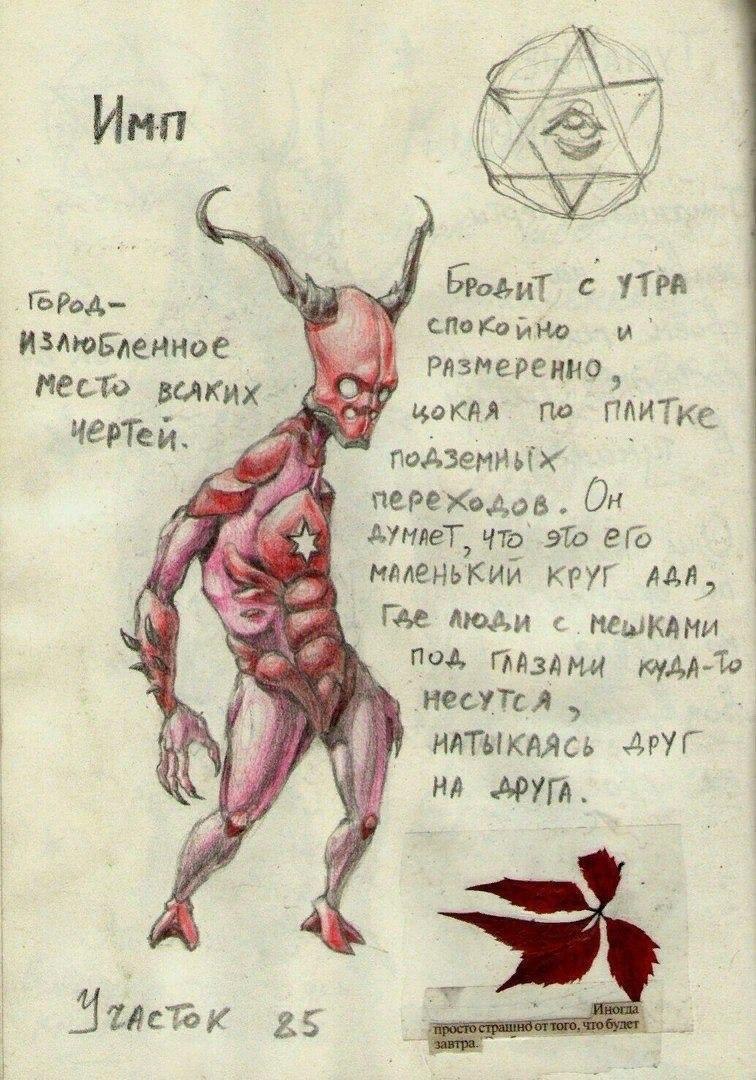 Имп
город-
излюбленное
место всяких
чертей.
Бродит с утра
спокойно и
размеренно,
цокая по плитке
подземных
переходов. Он
думает, что это его
маленький круг ада,
где люди с мешками
под глазами куда-то
несутся,
натыкаясь друг
на друга.
Участок 25
Иногда
просто страшно от того, что будет
завтра.